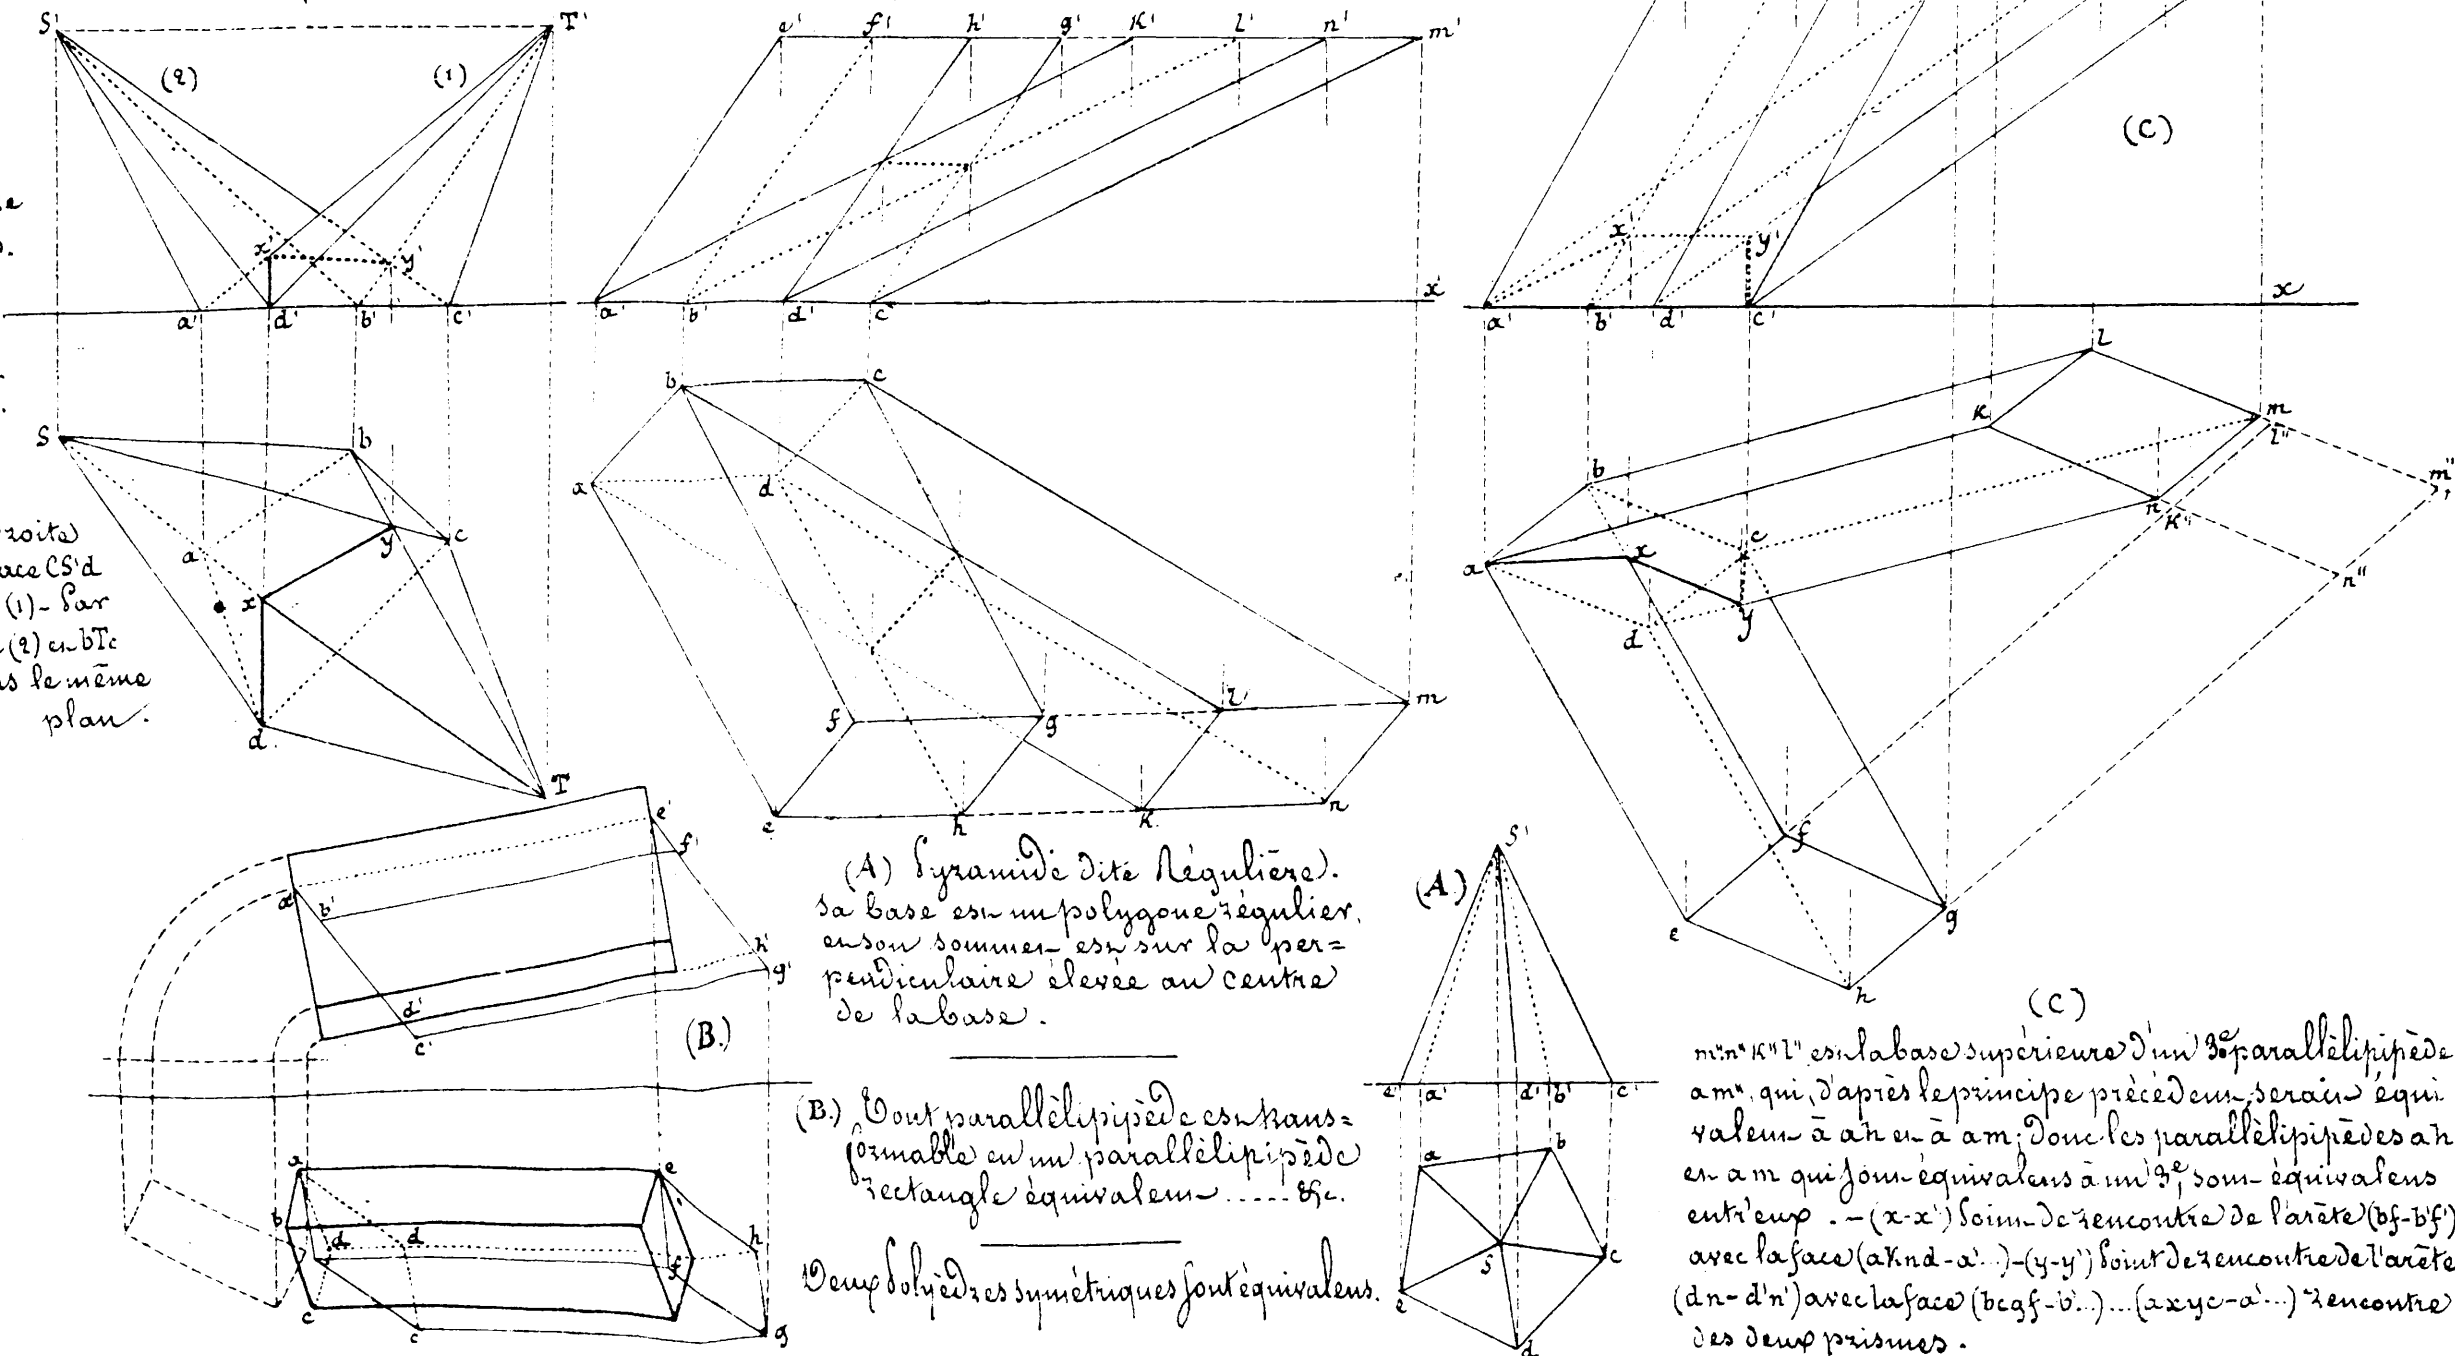 S' T' e' f' h' g' K' l' n' m'
(2) (1) (C)
x' y' x y'
a' d' b' c' a' b' d' c' x' a' b' d' c' x
S b a y c x d T
b c a d f g l m e h K n
l K m l" b m" n K" n" a x c d y f e g h
roite
ace CS'd
(1) - Par
(2) et bTc
ns le même
plan.
e' f' a' b' d' c' h' g'
(B.)
a e b d d h f c c g
(A) Pyramide dite Régulière.
Sa base est un polygone régulier,
et son sommet est sur la per=
pendiculaire élevée au centre
de la base.
(B.) Tout parallèlipipède est trans=
formable en un parallèlipipède
rectangle équivalent ..... &c.
Deux Polyèdres symétriques sont équivalens.
(A.)
S'
e' a' d' b' c'
a b S c e d
(C)
m"n"K"l" est la base supérieure d'un 3e parallèlipipède
am", qui, d'après le principe précédent, serait équi
valent à ah et à am; donc les parallèlipipèdes ah
et am qui sont équivalens à un 3e, sont équivalens
entr'eux. - (x-x') Point de rencontre de l'arète (bf-b'f')
avec la face (aKnd-a'...)-(y-y') Point de rencontre de l'arète
(dn-d'n') avec la face (bcgf-b'...)...(axyc-a'...) rencontre
des deux prismes.